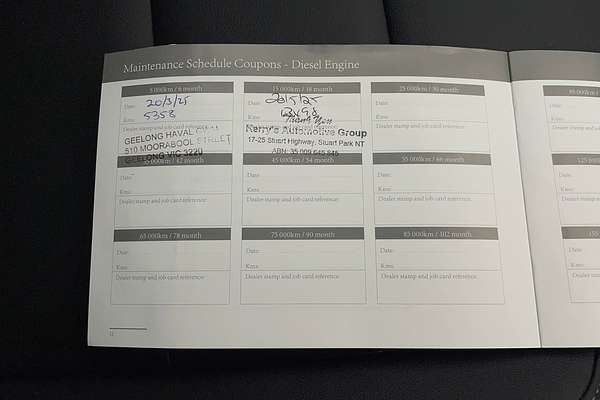 Maintenance Schedule Coupons - Diesel Engine
5 000km / 6 month
Date: 20/3/25
Kms: 5358
Dealer stamp and job card reference
GEELONG HAVAL
510 MOORABOOL STREET
GEELONG VIC 3220
15 000km / 18 month
Date: 26/5/25
Kms:
Thank You
Kerry's Automotive Group
17-25 Stuart Highway, Stuart Park NT
ABN: 35 009 645 845
25 000km / 30 month
Date:
Kms:
Dealer stamp and job card reference
35 000km / 42 month
Date:
Kms:
Dealer stamp and job card reference
45 000km / 54 month
Date:
Kms:
Dealer stamp and job card reference
55 000km / 66 month
Date:
Kms:
Dealer stamp and job card reference
65 000km / 78 month
Date:
Kms:
Dealer stamp and job card reference
75 000km / 90 month
Date:
Kms:
Dealer stamp and job card reference
85 000km / 102 month
Date:
Kms:
Dealer stamp and job card reference
Date:
Kms:
Dealer stam
125
Date:
Kms:
Dealer stam
155
Date:
Kms:
Dealer stam